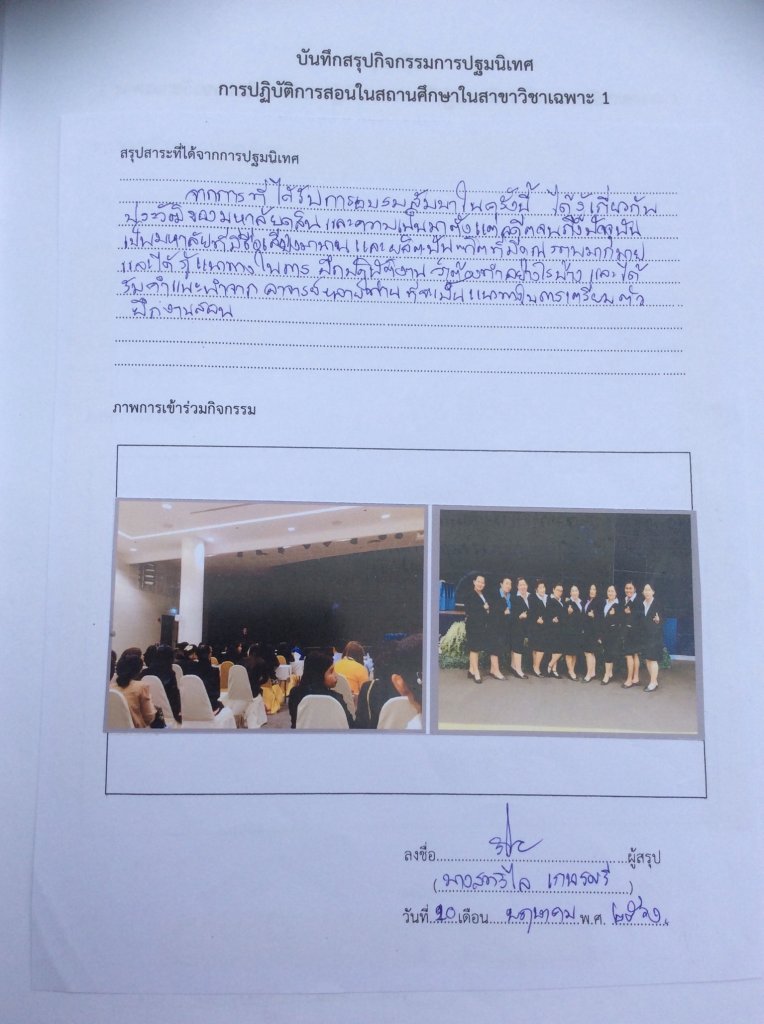 บันทึกสรุปกิจกรรมการปฐมนิเทศ
การปฏิบัติการสอนในสถานศึกษาในสาขาวิชาเฉพาะ 1
สรุปสาระที่ได้จากการปฐมนิเทศ
จากการที่ได้รับการอบรมสัมมนาในครั้งนี้ ได้รู้เกี่ยวกับ
ประวัติของมหาลัยดุสิต และความเป็นมาตั้งแต่อดีตจนถึงปัจจุบัน
เป็นมหาลัยที่มีชื่อเสียงมานาน และผลิตบัณฑิตที่มีคุณภาพมากมาย
และได้รู้แนวทางในการ ฝึกปฏิบัติงาน ว่าต้องทำอย่างไรบ้าง และได้
รับคำแนะนำจาก อาจารย์หลายท่าน ที่จะเป็นแนวทางในการเตรียมตัว
ฝึกงานสอน
ภาพการเข้าร่วมกิจกรรม
ลงชื่อ ผู้สรุป
( )
วันที่ 20 เดือน พฤษภาคม พ.ศ.